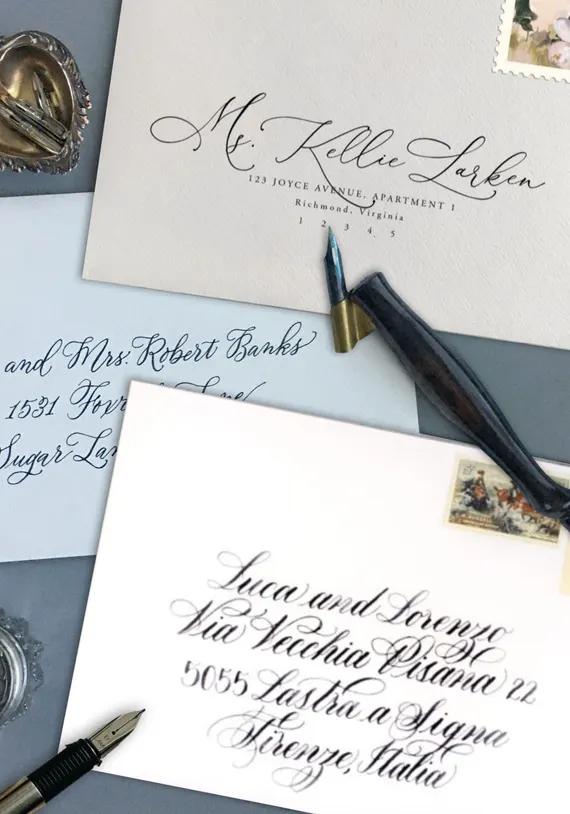 Ms. Kellie Larken
123 JOYCE AVENUE, APARTMENT 1
Richmond, Virginia
1 2 3 4 5
and Mrs. Robert Banks
1531
Sugar
Luca and Lorenzo
Via Vecchia Pisana 22
5055 Lastra a Signa
Firenze, Italia